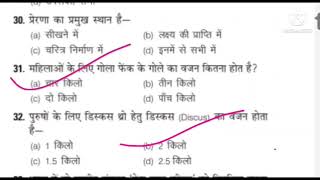 30. प्रेरणा का प्रमुख स्थान है—
(a) सीखने में (b) लक्ष्य की प्राप्ति में
(c) चरित्र निर्माण में (d) इनमें से सभी में
31. महिलाओं के लिए गोला फेंक के गोले का वजन कितना होता है?
(a) चार किलो (b) तीन किलो
(c) दो किलो (d) पाँच किलो
32. पुरुषों के लिए डिस्कस थ्रो हेतु डिस्कस (Discus) का वजन होता
है—
(a) 1 किलो (b) 2 किलो
(c) 1.5 किलो (d) 2.5 किलो